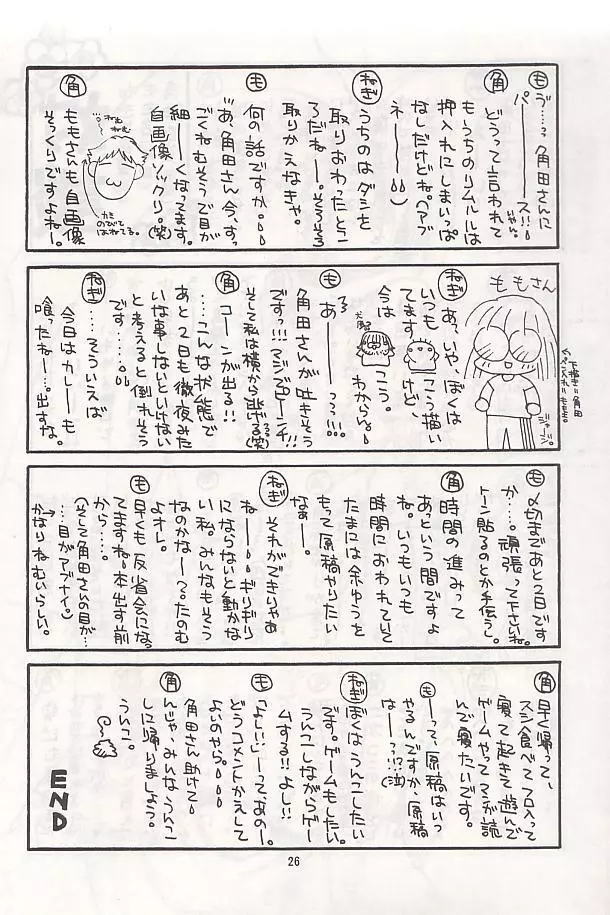 も う゛…っ角田さんに
パ———ス!!
角 どうって言われて
もうちのリムルルは
押入れにしまいっぱ
なしだけどね。(アブ
ネ———)
ねぎ うちのはダシを
取りおわったとこ
ろだねー。そろそろ
取りかえなきゃ。
も 何の話ですか。
あ、角田さん今、すっ
ごくねむそうで目が
細——くなってます。
自画像ソックリ。(笑)
ねむ
ねむ
カミ
のびて
はねてる。
角 ももさんも自画像
そっくりですよねー。
ももさん
ジャージ。
下描き 角田
ペン入れ ももき。
ねぎ あっ、いや、ぼくは
いつも こう描い
てます けど、
今は こう。
わからん。
も あ——っっ!!!
角田さんが吐きそう
ですっ!!!マジでピーンチ!!
そして私は横から逃げる(笑)
角 コーンが出る!!
…こんな状態で
あと2日も徹夜みた
いな事しないといけない
と考えると倒れそう
です……。
ねぎ …そういえば
今日はカレーも
喰ったねー…。出すな。
も 〆切まであと2日です
か…。頑張って下さいね。
トーン貼るのとか手伝うし。
角 時間の進みって
あっという間ですよ
ね。いつもいつも
時間におわれていて
たまには余ゆうを
もって原稿やりたい
なあー。
ねぎ それができりゃあ
ねー——ギリギリ
にならないと動かな
い私。みんなもそう
なのかなー?たのむ
よオレ。
も 早くも反省会になっ
てますね。本出す前
から……。
(そして角田さんの目が…
…目がアブナイ。)
→かなりねむいらしい。
角 早く帰って、
スシ食べてフロ入って
寝て起きて遊んで
ゲームやってマンガ読
んで寝たいです。
も ーって、原稿はいつ
やるんですか、原稿
はーっっ!!?(泣)
ねぎ ぼくはうんこしたい
です。ゲームもしたい。
うんこしながらゲー
ムする!!よし!!
も 「よし!」ーってあのー。
どうコメントかえして
よいのやら。
角田さん助けて
角 んじゃ、みんなうんこ
しに帰りましょう。
うんこ。
END
26